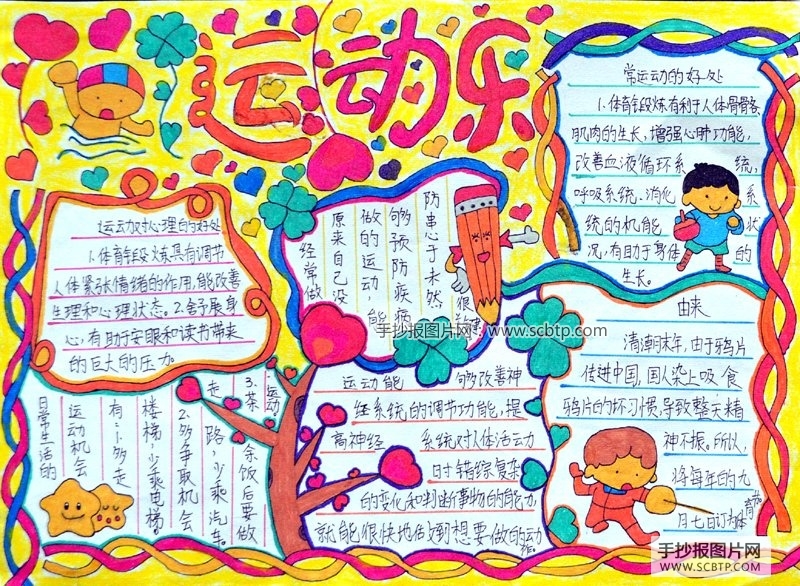 运动乐
常运动的好处
1.体育锻炼有利于人体骨骼、
肌肉的生长,增强心肺功能,
改善血液循环系统,
呼吸系统、消化系
统的机能状
况,有助于身体的
生长。
运动对心理的好处
1.体育锻炼具有调节
人体紧张情绪的作用,能改善
生理和心理状态。2.舒展身
心,有助于安眠和读书带来
的巨大的压力。
经常做
原来自己没
做的运动,能
够预防疾病
防患于未然
很
由来
清潮的末年,由于鸦片
传进中国,国人染上吸食
鸦片的坏习惯,导致整天精
神不振。所以,
将每年的九
月七日订为体育
日常生活的
运动机会
有:1.多走
楼梯,少乘电梯。
2.多争取机会
走路,少乘汽车。
3.茶余饭后要做
运动
运动能够改善神
经系统的调节功能,提
高神经系统对人体活动
时错综复杂
的变化和判断事物的能力,
就能很快地做到想要做的动作。
手抄报图片网:www.scbtp.com
手抄报图片网
WWW.SCBTP.COM